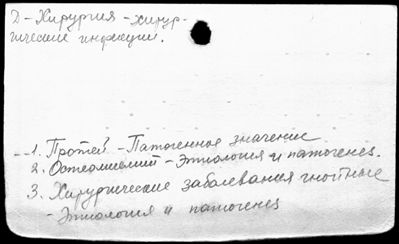 2 - Хирургия - хирур-
гические инфекции.
1. Протей - Патогенное значение
2. Остеомиелит - Этиология и патогенез.
3. Хирургические заболевания гнойные
- Этиология и патогенез